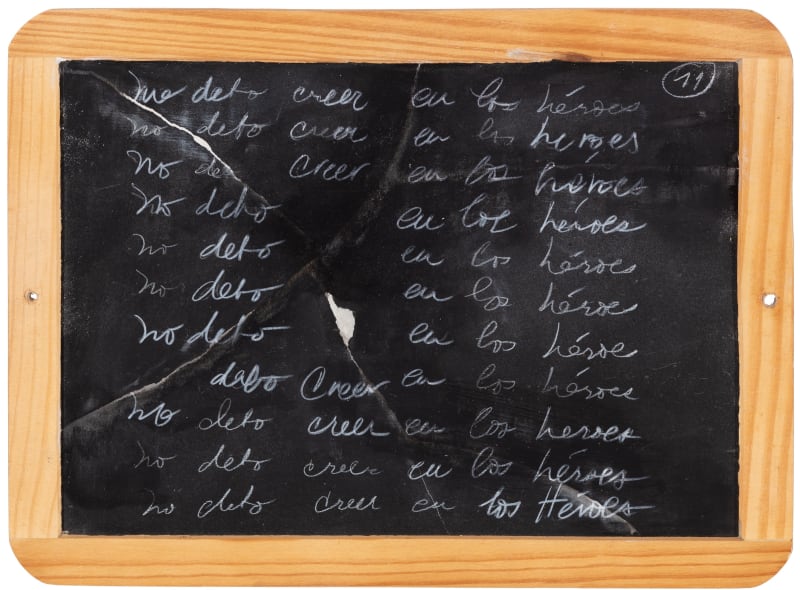 no debo creer en los héroes 11
no debo creer en los heroes
no debo creer en los héroes
no debo en los héroes
no debo en los héroes
no debo en los héroe
no debo en los héroe
debo Creer en los héroes
no debo creer en los heroes
no debo creer en los héroes
no debo creer en los Héroes